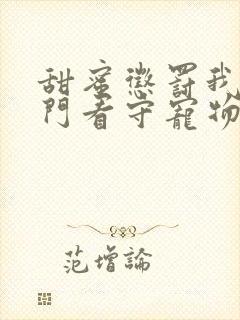 甜蜜懲罰我
門看守寵物
范增論